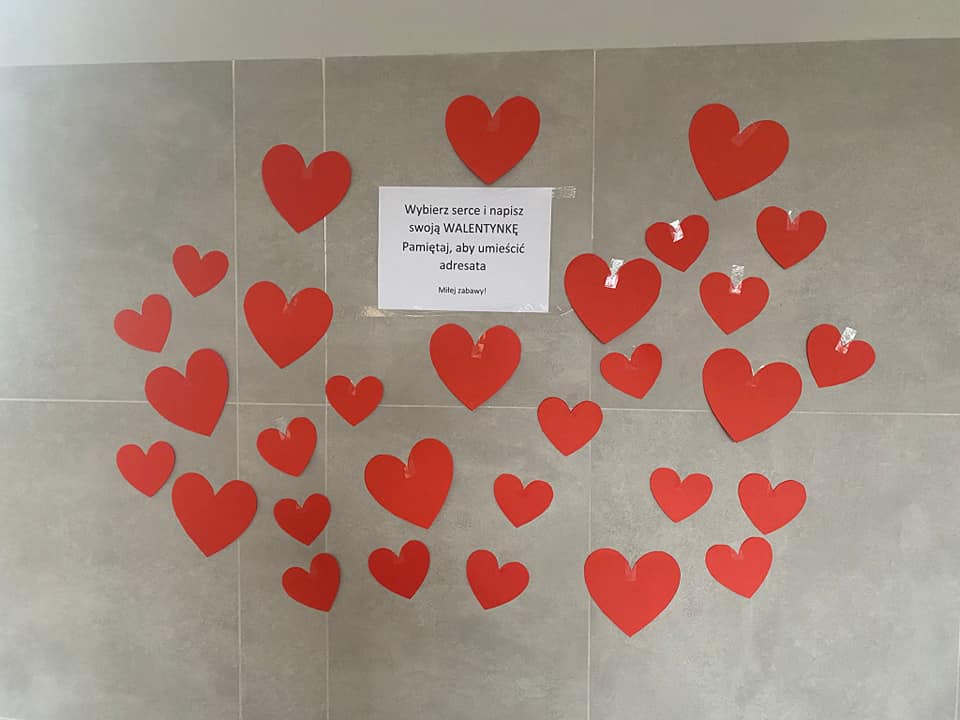 Wybierz serce i napisz
swoją WALENTYNKĘ
Pamiętaj, aby umieścić
adresata
Miłej zabawy!